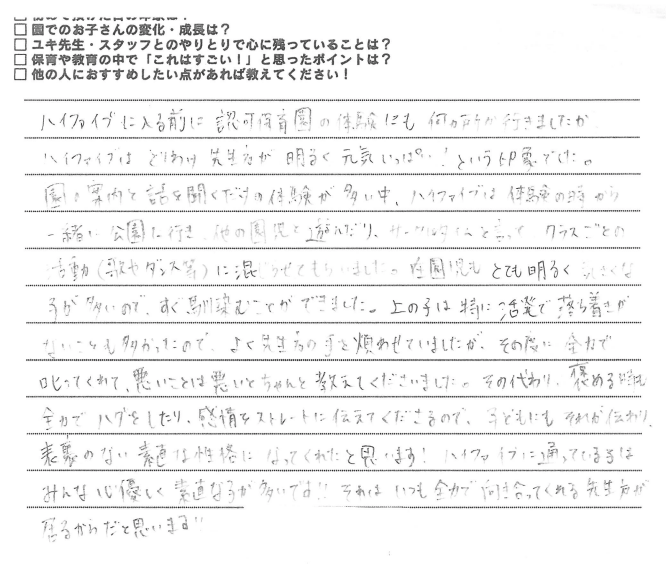 □ 園でのお子さんの変化・成長は？
□ ユキ先生・スタッフとのやりとりで心に残っていることは？
□ 保育や教育の中で「これはすごい！」と思ったポイントは？
□ 他の人におすすめしたい点があれば教えてください！
ハイファイブに入る前に認可保育園の体験にも何か所か行きましたが
ハイファイブはとりわけ先生方が明るく元気いっぱい！という印象でした。
園の案内と話を聞くだけの体験が多い中、ハイファイブは体験の時から
一緒に公園に行き、他の園児と遊んだり、サークルタイムと言って クラスごとの
活動（歌やダンス等）に混ぜてもらいました。在園児もとても明るく
子が多いので、すぐ馴染むことができました。上の子は特に活発で落ち着きが
ないことも多かったので、よく先生方の手を煩わせていましたが、その度に全力で
叱ってくれて、悪いことは悪いとちゃんと教えてくださいました。その代わり、褒める時も
全力でハグをしたり、感情をストレートに伝えてくださるので、子どもにもそれが伝わり、
表裏のない素直な性格になってくれたと思います！ハイファイブに通っている子は
みんな心優しく素直な子が多いです!! それはいつも全力で向き合ってくれる先生方が
居るからだと思います!!